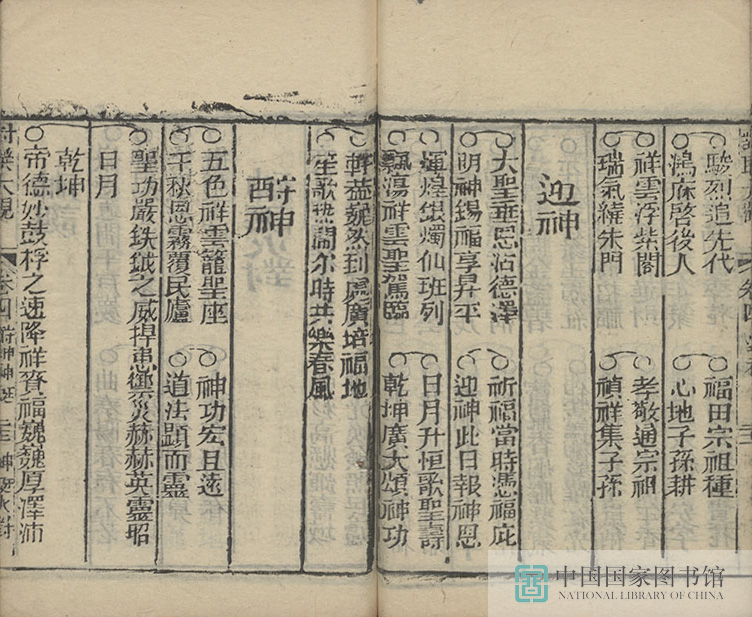 駿烈追先代 福田宗祖種
鴻庥啓後人 心地子孫耕
祥雲浮紫閣 孝敬通宗祖
瑞氣繞朱門 禎祥集子孫
迎神
大聖垂恩沾德澤 祈福當時憑福庇
明神錫福享昇平 迎神此日報神恩
輝煌銀燭仙班列 日月升恒歌聖壽
飄蕩祥雲聖駕臨 乾坤廣大頌神功
巍然到處廣培福地
笙歌熱鬧尔時共樂春風
神
五色祥雲籠聖座 神功宏且遠
千秋恩霧覆民廬 道法顯而靈
聖功嚴鈇鉞之威捍患禦灾赫赫英靈昭
日月
乾坤
帝德妙鼓桴之速降祥賚福巍巍厚澤沛
卷四
中国国家图书馆
NATIONAL LIBRARY OF CHINA